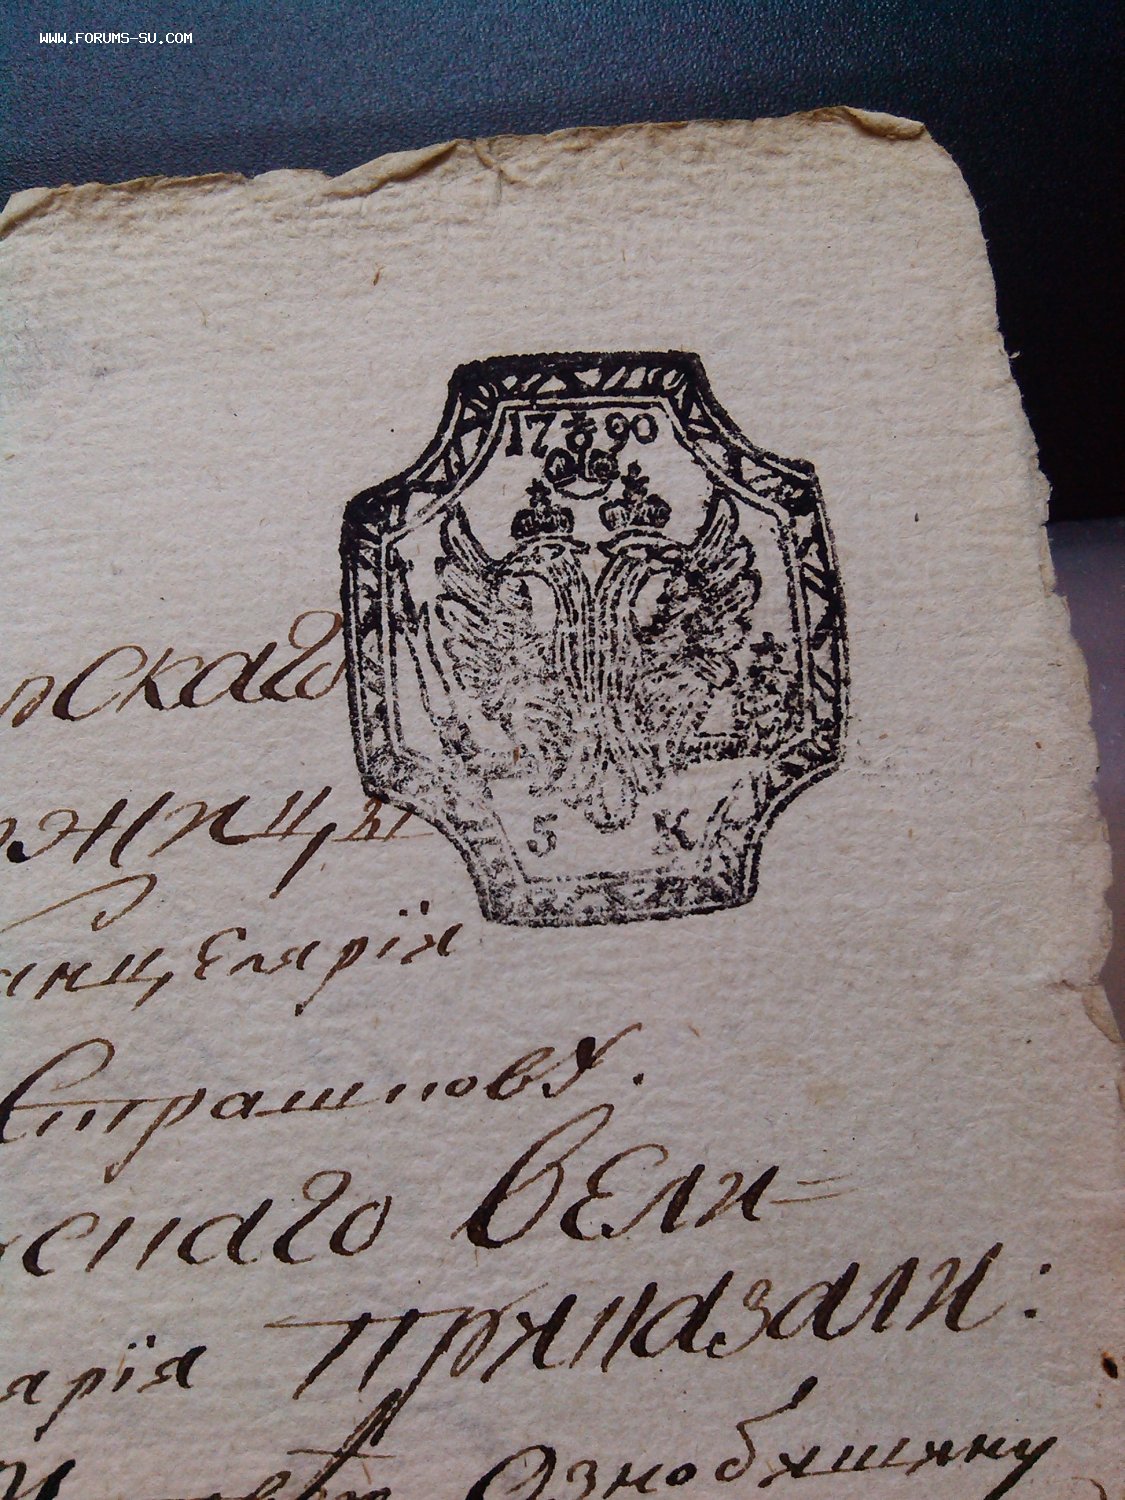 WWW.FORUMS-SU.COM
17 90
5 К
скаго
анцелярiя
Страшновъ.
снаго Вели=
ярiя Приказали:
Ознобишину